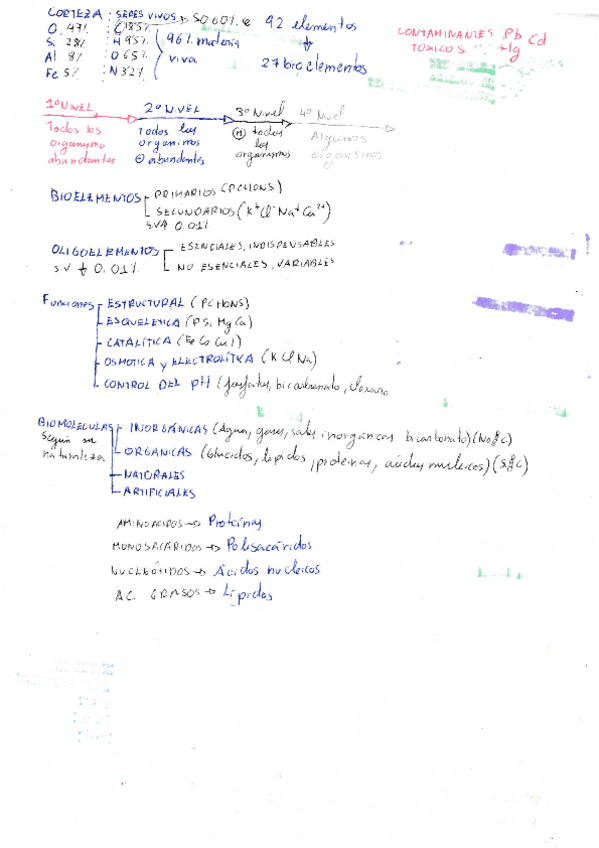 CORTEZA : SERES VIVOS → 50 60% e 92 elementos
O 47% : C 18'5%
Si 28% : H 9'5% 96% materia
Al 8% : O 65% viva
Fe 5% : N 3'2% 27 bioelementos
CONTAMINANTES Pb Cd
TOXICOS Hg
1º NIVEL 2º NIVEL 3º Nivel 4º Nivel
Todos los organismo abundantes
Todos los organismos ⊖ abundantes
(M) todos los organismos
Algunos organismos
BIOELEMENTOS PRIMARIOS (PCHONS)
SECUNDARIOS (K⁺ Cl⁻ Na⁺ Ca²⁺)
0.01%
OLIGOELEMENTOS ESENCIALES, INDISPENSABLES
S.V 0.01% NO ESENCIALES, VARIABLES
Funciones ESTRUCTURAL (PCHONS)
ESQUELETICA (P Si Mg Ca)
CATALÍTICA (Fe Co Cu I)
OSMOTICA y ELECTROLÍTICA (K Cl Na)
CONTROL DEL pH (fosfatos, bicarbonato, cloruro
BIOMOLECULAS INORGÁNICAS (Agua, gases, sales inorgánicas bicarbonato) (No C)
Según su naturaleza
ORGANICAS (Glucidos, lípidos, proteinas, acidos nucleicos) (Si C)
NATURALES
ARTIFICIALES
AMINOACIDOS → Proteínas
MONOSACÁRIDOS → Polisacáridos
NUCLEÓTIDOS → Ácidos nucleicos
AC. GRASOS → Lípidos